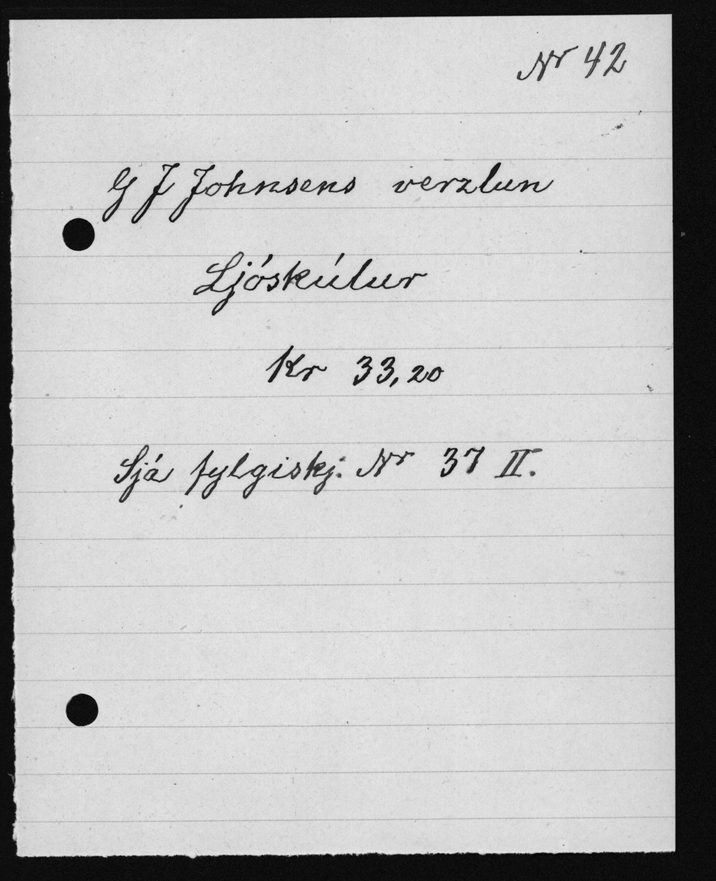 Nr 42
G J Johnsens verzlun
Ljóskúlur
Kr 33,20
Sjá fylgiskj. Nr 37 II.